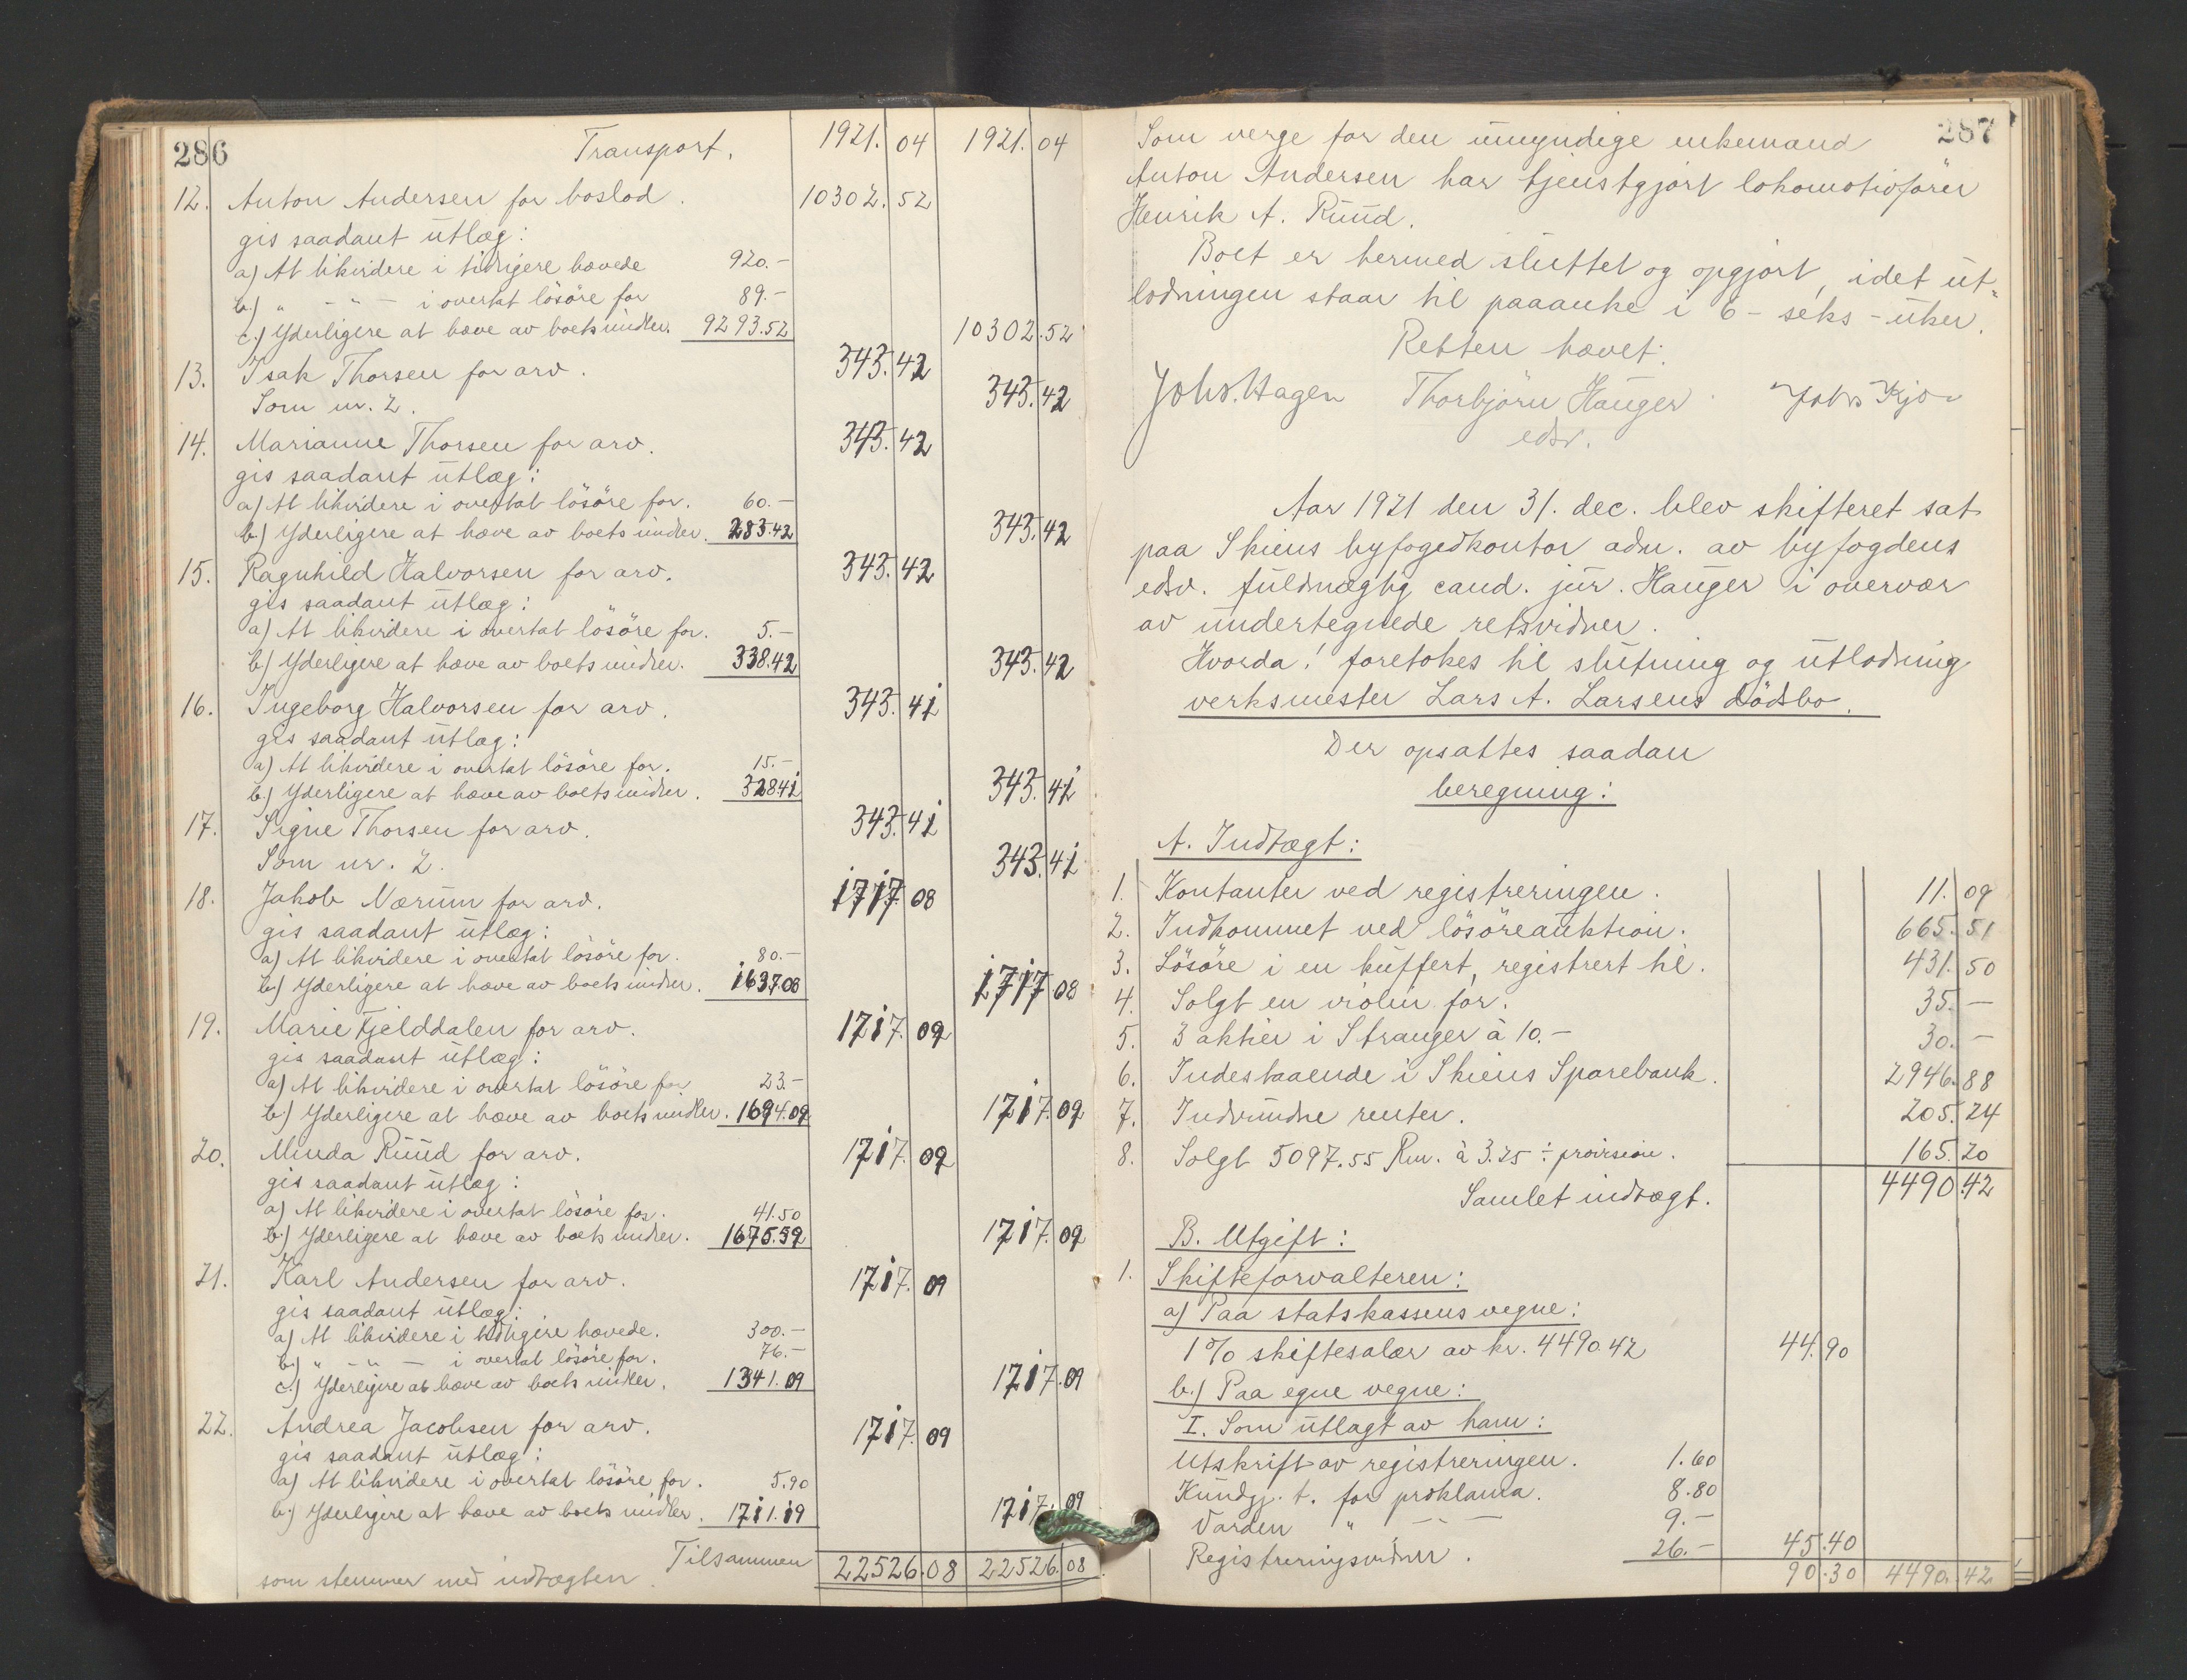 286
Transport. 1921.04 1921.04
12. Anton Andersen for boslod. 10302.52
gis saadant utlæg:
a) At likvidere i tidligere hævede 920.-
b) " - " - i overtat lösöre for 89.-
c.) Yderligere at hæve av boets midler. 9293.52 10302.52
13. Isak Thorsen for arv. 343.42
Som nr. 2. 343.42
14. Marianne Thorsen for arv. 343.42
gis saadant utlæg:
a) At likvidere i overtat lösöre for. 60.-
b.) Yderligere at hæve av boets midler. 283.42 343.42
15. Ragnhild Halvorsen for arv. 343.42
gis saadant utlæg:
a) At likvidere i overtat lösöre for. 5.-
b.) Yderligere at hæve av boets midler. 338.42 343.42
16. Ingeborg Halvorsen for arv. 343.41
gis saadant utlæg:
a) At likvidere i overtat lösöre for. 15.-
b.) Yderligere at hæve av boets midler. 328.41 343.41
17. Signe Thorsen for arv. 343.41
Som nr. 2. 343.41
18. Jakob Nærum for arv. 1717.08
gis saadant utlæg:
a) At likvidere i overtat lösöre for. 80.-
b.) Yderligere at hæve av boets midler. 1637.08 1717.08
19. Marie Fjelddalen for arv. 1717.09
gis saadant utlæg:
a) At likvidere i overtat lösöre for 23.-
b.) Yderligere at hæve av boets midler. 1694.09 1717.09
20. Minda Ruud for arv. 1717.09
gis saadant utlæg:
a) At likvidere i overtat lösöre for. 41.50
b.) Yderligere at hæve av boets midler. 1675.59 1717.09
21. Karl Andersen for arv. 1717.09
gis saadant utlæg:
a) At likvidere i tidligere hævede. 300.-
b.) " - " - i overtat lösöre for. 76.-
c.) Yderligere at hæve av boets midler. 1341.09 1717.09
22. Andrea Jacobsen for arv. 1717.09
gis saadant utlæg:
a) At likvidere i overtat lösöre for. 5.90
b.) Yderligere at hæve av boets midler. 1711.19 1717.09
Tilsammen 22526.08 22526.08
som stemmer med indtægten.
287
Som verge for den umyndige enkemand
Anton Andersen har tjenstgjort lokomotivförer
Henrik A. Ruud.
Boet er hermed sluttet og opgjort, idet ut-
lodningen staar til paaanke i 6 - seks - uker.
Retten hævet.
Johs. Hagen Thorbjörn Hauger
edsv.
Aar 1921 den 31. dec. blev skifteret sat
paa Skiens byfogedkontor adm. av byfogdens
edsv. fuldmægtig cand. jur. Hauger i overvær
av undertegnede retsvidner.
Hvorda! foretokes til slutning og utlodning
verksmester Lars A. Larsens dödsbo.
Der opsattes saadan
beregning:
A. Indtægt:
1. Kontanter ved registreringen. 11.09
2. Indkommet ved lösöreauktion. 665.51
3. Lösöre i en kuffert, registrert til. 431.50
4. Solgt en violin for. 35.-
5. 3 aktier i Stranger à 10.- 30.-
6. Indestaaende i Skiens Sparebank. 2946.88
7. Indvundne renter. 205.24
8. Solgt 5097.55 Rm. à 3.25 ÷ provision. 165.20
Samlet indtægt. 4490.42
B. Utgift:
1. Skifteforvalteren:
a) Paa statskassens vegne:
1 % skiftesalær av kr. 4490.42 44.90
b.) Paa egne vegne:
I. Som utlagt av ham:
Utskrift av registreringen. 1.60
Kundgj. t. for proklama. 8.80
Varden " - - 9.-
Registreringsvidner. 26.- 45.40
90.30 4490.42